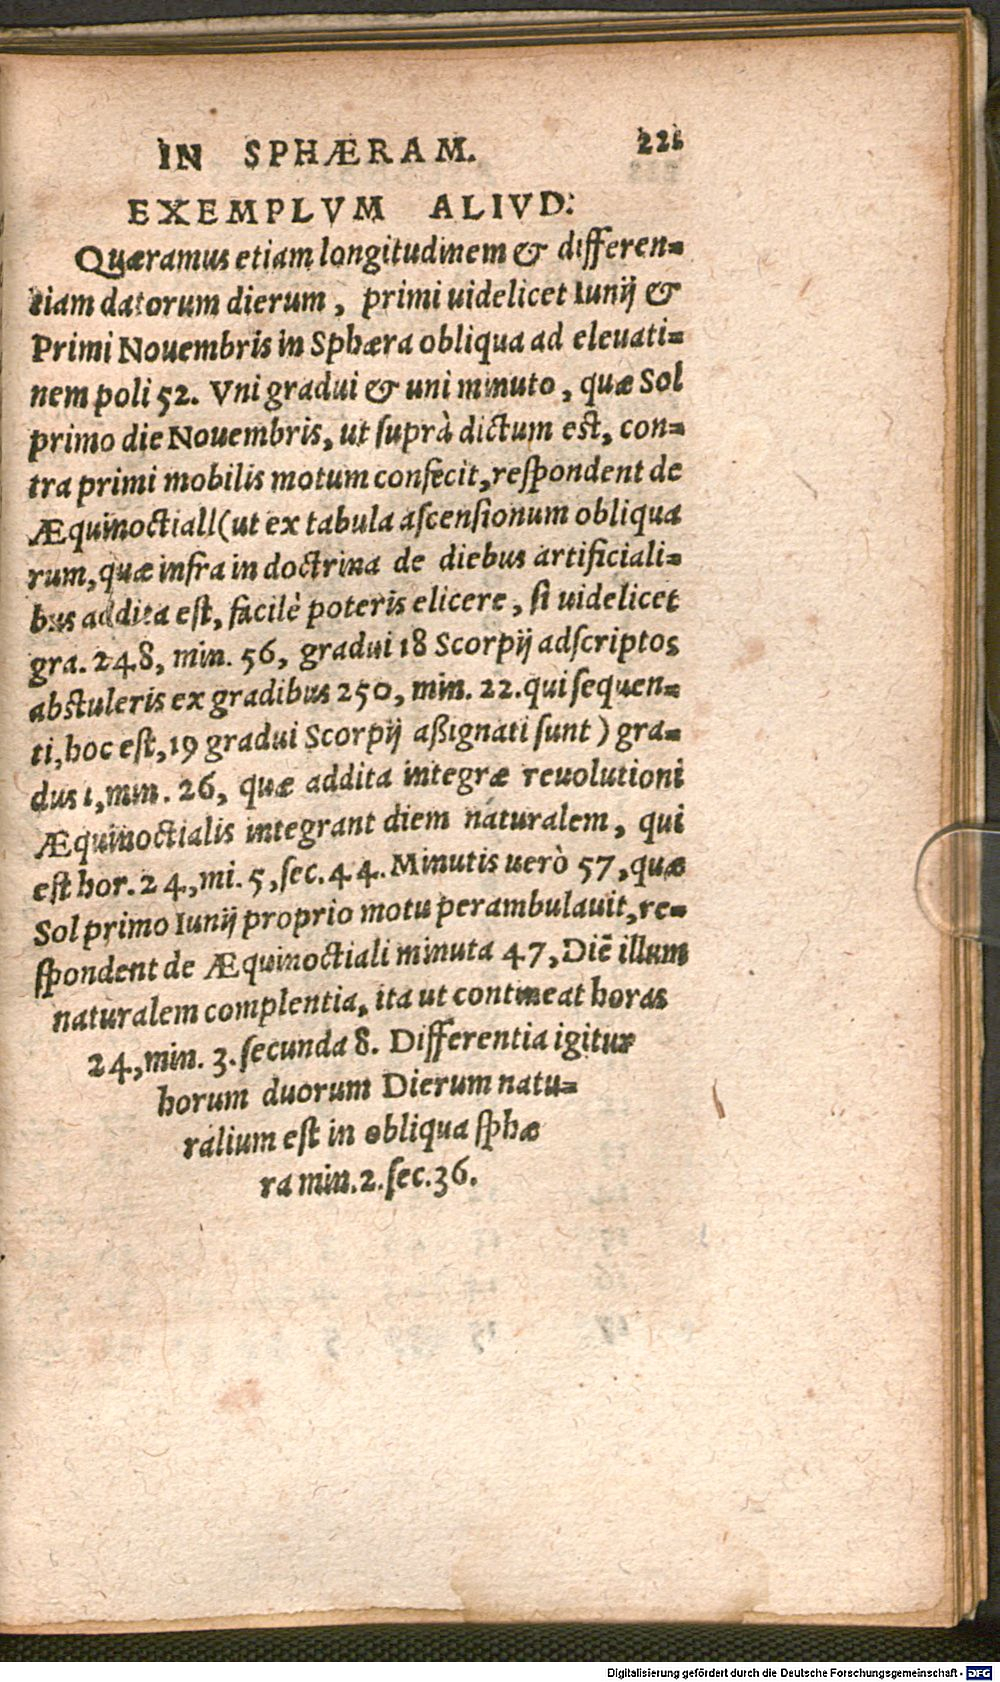 IN SPHÆRAM. 221
EXEMPLVM ALIVD:
Quæramus etiam longitudinem & differen=
tiam datorum dierum, primi uidelicet Iunij &
Primi Nouembris in Sphæra obliqua ad eleuati=
nem poli 52. Vni gradui & uni minuto, quæ Sol
primo die Nouembris, ut suprà dictum est, con=
tra primi mobilis motum confecit, respondent de
Æquinoctiall (ut ex tabula ascensionum obliqua
rum, quæ infra in doctrina de diebus artificiali=
bus addita est, facilè poteris elicere, si uidelicet
gra. 248, min. 56, gradui 18 Scorpij adscriptos
abstuleris ex gradibus 250, min. 22. qui sequen=
ti, hoc est, 19 gradui Scorpij aßignati sunt) gra=
dus 1, min. 26, quæ addita integræ reuolutioni
Æquinoctialis integrant diem naturalem, qui
est hor. 24, mi. 5, sec. 44. Minutis uerò 57, quæ
Sol primo Iunij proprio motu perambulauit, re=
spondent de Æquinoctiali minuta 47, Diē illum
naturalem complentia, ita ut contineat horas
24, min. 3. secunda 8. Differentia igitur
horum duorum Dierum natu=
ralium est in obliqua sphæ
ra min. 2. sec. 36.
Digitalisierung gefördert durch die Deutsche Forschungsgemeinschaft - DFG